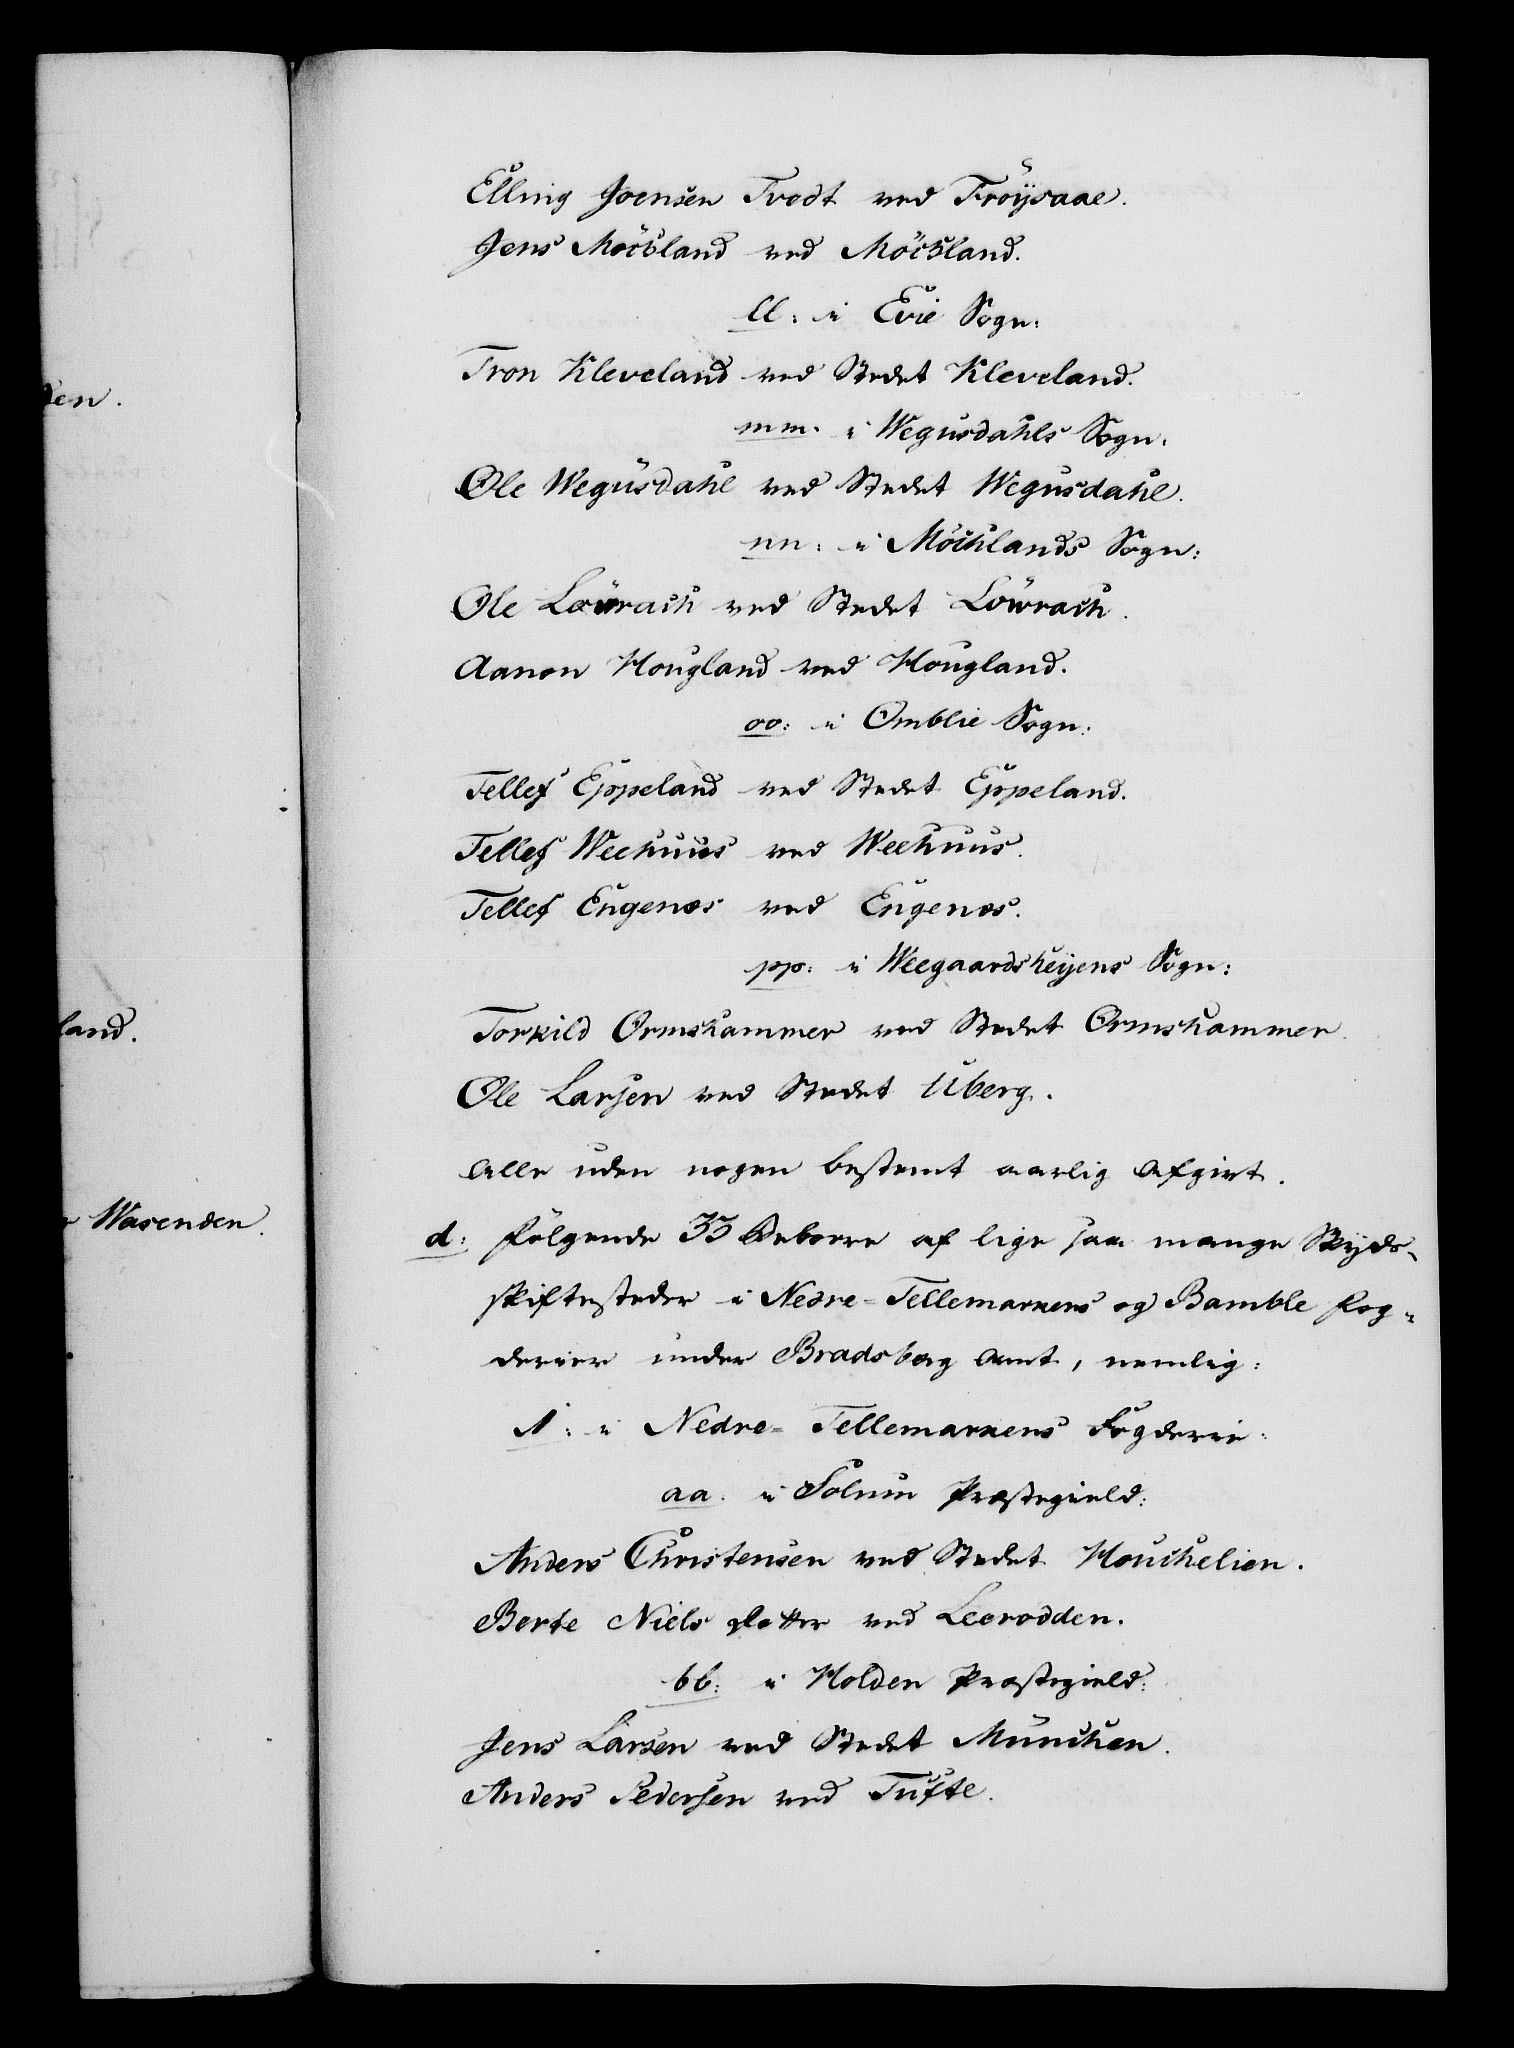 den.
land.
Wasenden.
Elling Joensen Tvedt ved Fröysaae.
Jens Möchland ved Möchland.
ll: i Evie Sogn:
Tron Kleveland ved Stedet Kleveland.
mm. i Wegusdahls Sogn.
Ole Wegusdahl ved Stedet Wegusdahl.
nn: i Möchlands Sogn:
Ole Löwrach ved Stedet Löwrach.
Aanon Hougland ved Hougland.
oo: i Omblie Sogn:
Tellef Eppeland ved Stedet Eppeland.
Tellef Weehuus ved Weehuus.
Tellef Eugenæs ved Eugenæs.
pp: i Weegaardsheyens Sogn:
Torkild Ormshammer ved Stedet Ormshammer.
Ole Larsen ved Stedet Uberg.
Alle uden nogen bestemt aarlig Afgivt.
d: Følgende 33 Beboere af lige saa mange Skyds-
skiftesteder i Nedre-Tellemarkens og Bamble Fog-
derier under Bradsberg Amt, nemlig:
1: i Nedre-Tellemarkens Fogderie:
aa. i Solum Præstegield:
Anders Christensen ved Stedet Houchelien.
Berte Niels Datter ved Leerodden.
bb: i Holden Præstegield:
Jens Larsen ved Stedet München.
Anders Pedersen ved Tufte.